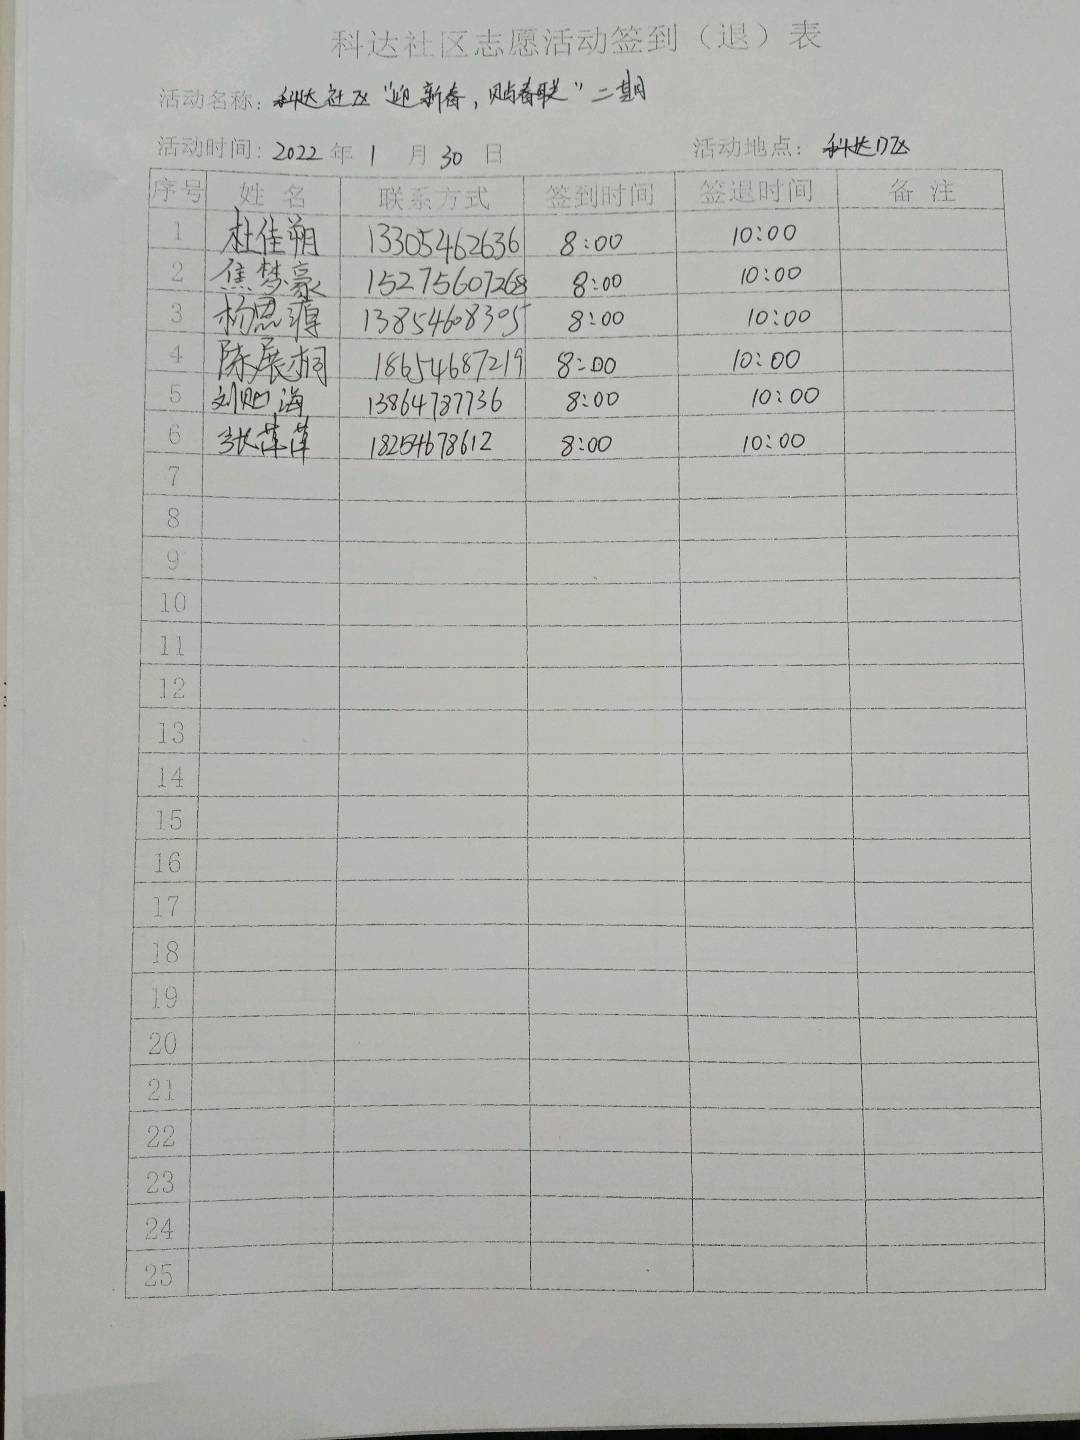 科达社区志愿活动签到（退）表
活动名称：科达社区“迎新春，贴春联”二期
活动时间：2022年1月30日 活动地点：科达D区
序号 姓名 联系方式 签到时间 签退时间 备注
1 杜佳朔 13305462636 8:00 10:00
2 焦梦豪 15275607268 8:00 10:00
3 杨思 13854608305 8:00 10:00
4 陈展桐 18654687219 8:00 10:00
5 刘 海 13864787736 8:00 10:00
6 张萍萍 18254678612 8:00 10:00
7
8
9
10
11
12
13
14
15
16
17
18
19
20
21
22
23
24
25